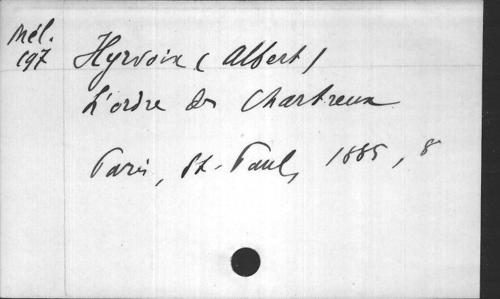 Mél.
197
Hyrvoix (Albert)
L'ordre des Chartreux
Paris, St-Paul, 1885, 8°